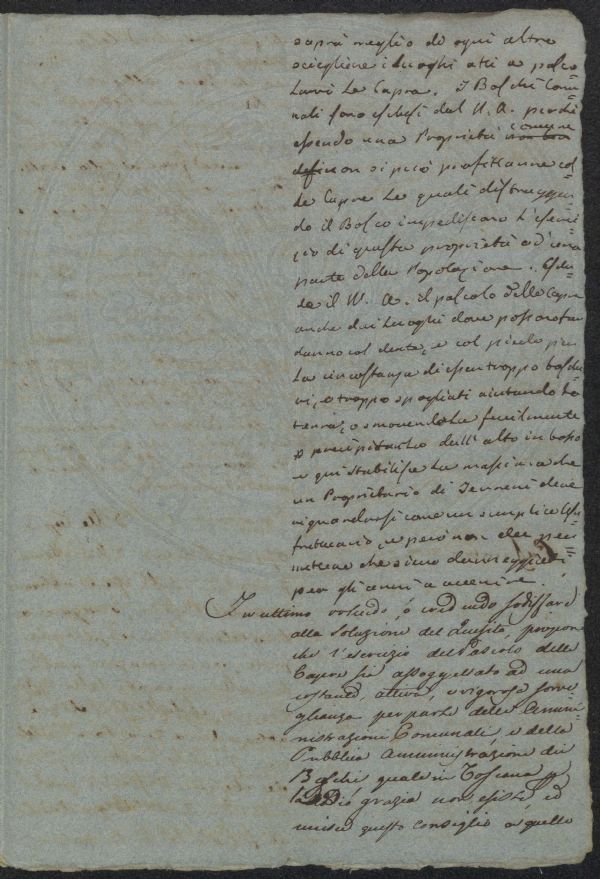 saprà meglio di ogni altro
sciegliere i Luoghi atti a pasco=
larvi le Capre. I Boschi Comu=
nali sono esclusi dal N. A. perchè
essendo una Proprietà comune
non si può profittarne col=
le Capre le quali distruggen=
do il Bosco impediscano l'eserci=
zio di questa proprietà ad una
parte della Popolazione. Esclu=
de il N. A. il pascolo delle Capre
anche dai Luoghi dove possono far
danno col dente, e col piede per
la circostanza di esser troppo
o troppo spogliati ajutando la
terra, o smovendola facilmente
a precipitarla dall'alto in basso
e qui stabilisce la massima che
un Proprietario di Terreni deve
riguardarsi come un semplice Usu=
fruttuario, e però non dee per=
mettere che siano danneggiati
per gli anni a avvenire.
In ultimo volendo, o credendo sodisfare
alla Soluzione del Quesito, propone
che l'esercizio del Pascolo delle
Capre sia assoggettato ad una
costante, attiva, e rigorosa sorve=
glianza per parte delle Ammi=
nistrazioni Comunali, e della
Pubblica Amministrazione dei
Boschi quale in Toscana
Dio grazia non esiste, ed
unisce questo consiglio a quello